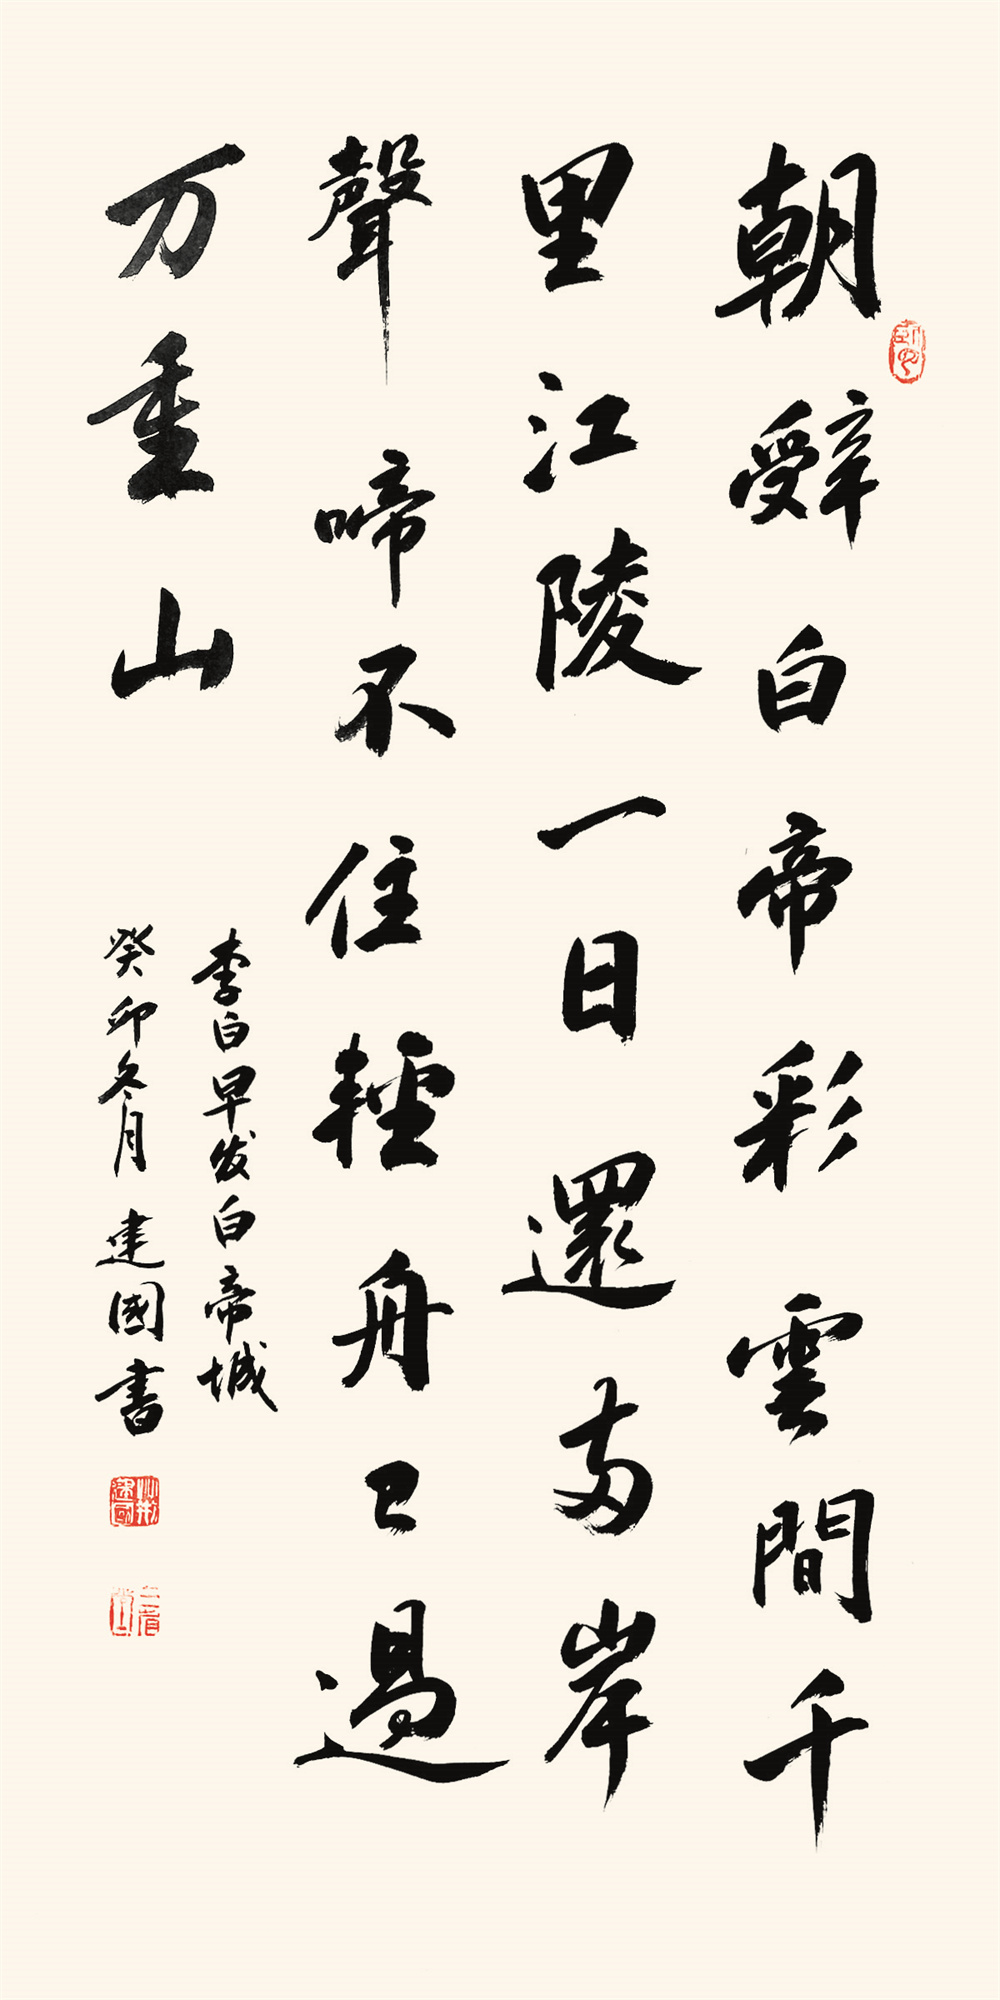 朝辭白帝彩雲間千
里江陵一日還兩岸
聲啼不住輕舟已過
万重山
李白早发白帝城
癸卯冬月建國書